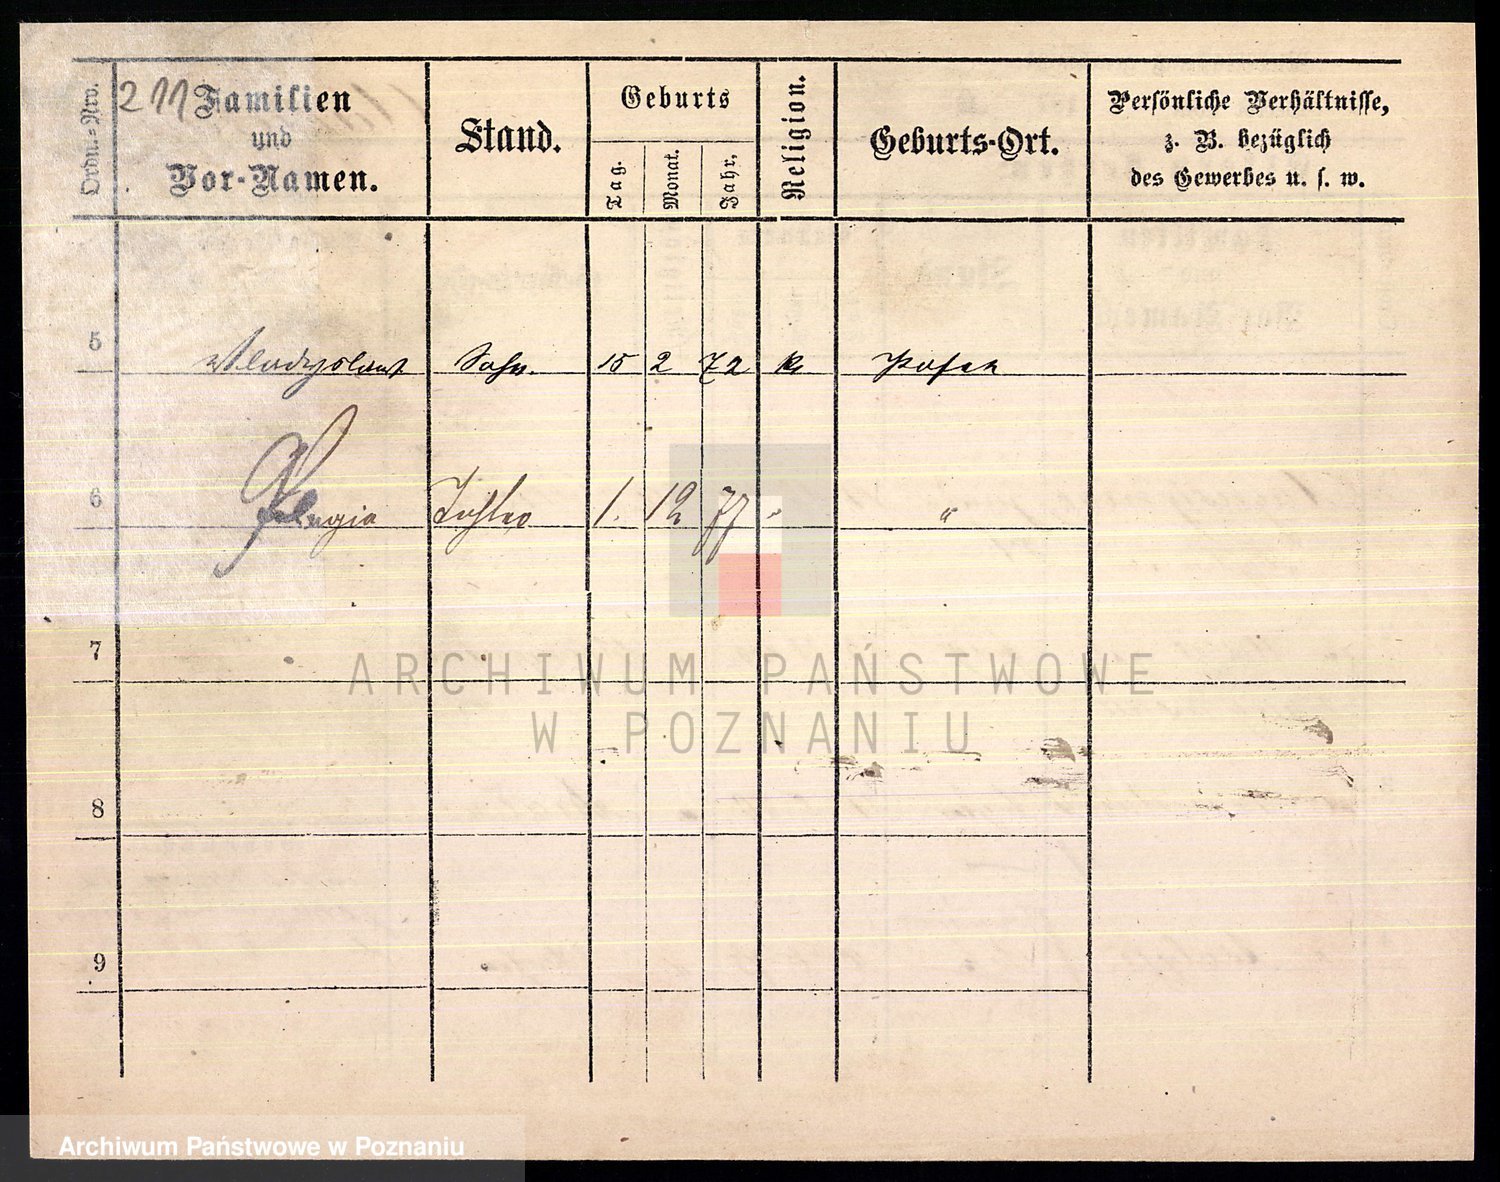 211
Ordn.=Nro.
Familien
und
Vor-Namen.
Stand.
Geburts
Tag.
Monat.
Jahr.
Religion.
Geburts-Ort.
Persönliche Verhältnisse,
z. B. bezüglich
des Gewerbes u. s. w.
5 Wladyslaus Sohn. 15 2 72 k Posen
6 Pelagia Tochter 1. 12 77 " "
7
ARCHIWUM PAŃSTWOWE
W POZNANIU
8
9
Archiwum Państwowe w Poznaniu